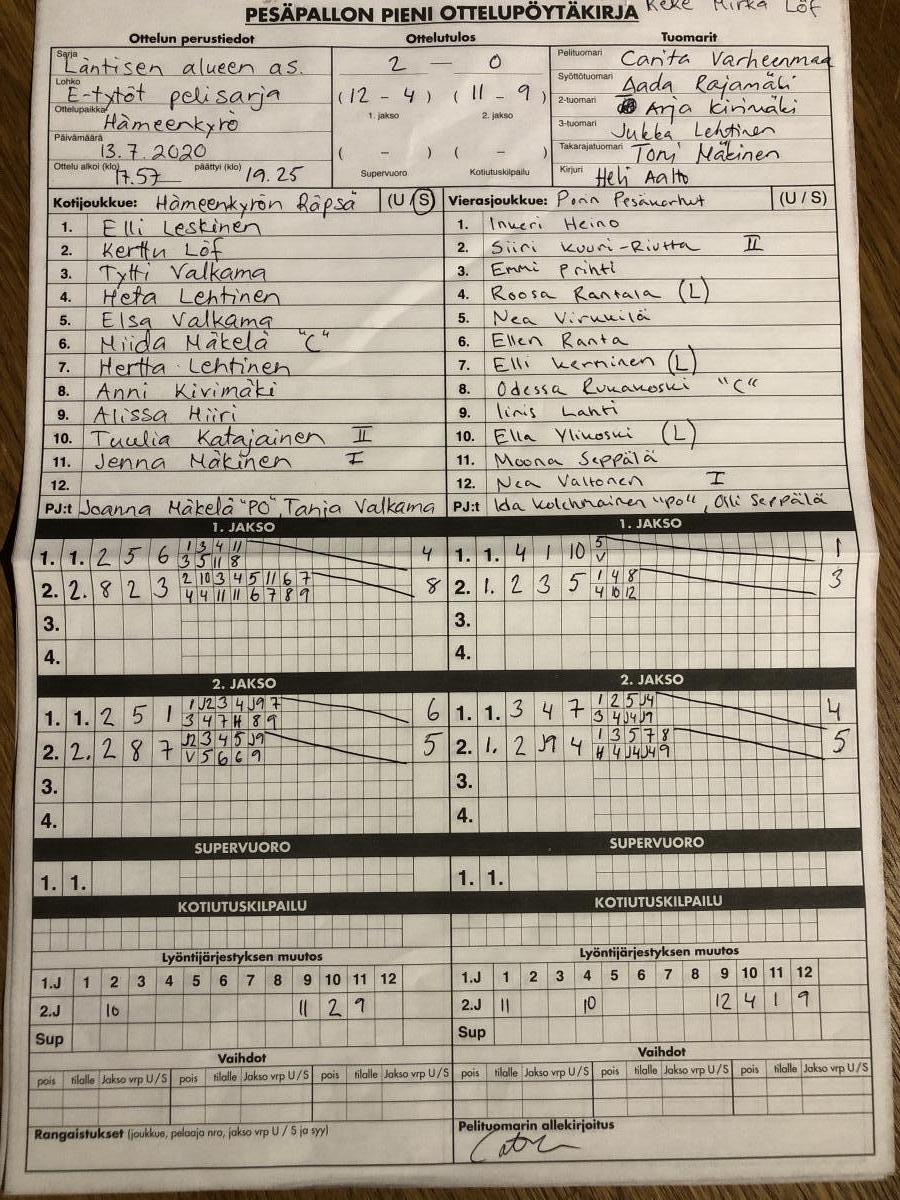 Keke Mirka Löf
PESÄPALLON PIENI OTTELUPÖYTÄKIRJA
Ottelun perustiedot
Sarja Läntisen alueen as.
Lohko E-tytöt pelisarja
Ottelupaikka Hämeenkyrö
Päivämäärä 13.7.2020
Ottelu alkoi (klo) 17.57 päättyi (klo) 19.25
Ottelutulos
2 — 0
(12 - 4) (11 - 9)
1. jakso 2. jakso
( - ) ( - )
Supervuoro Kotiutuskilpailu
Tuomarit
Pelituomari Carita Varheenmaa
Syöttötuomari Aada Rajamäki
2-tuomari Arja Kirimäki
3-tuomari Jukka Lehtinen
Takarajatuomari Toni Mäkinen
Kirjuri Heli Aalto
Kotijoukkue: Hämeenkyrön Räpsä (U/S)
1. Elli Leskinen
2. Kerttu Löf
3. Tytti Valkama
4. Heta Lehtinen
5. Elsa Valkama
6. Miida Mäkelä "C"
7. Hertta Lehtinen
8. Anni Kivimäki
9. Alissa Hiiri
10. Tuulia Katajainen II
11. Jenna Mäkinen I
12.
PJ:t Joanna Mäkelä "PO", Tanja Valkama
Vierasjoukkue: Porin Pesäkarhut (U/S)
1. Inkeri Heino
2. Siiri Kuuri-Riutta II
3. Emmi Prihti
4. Roosa Rantala (L)
5. Nea Virkkilä
6. Ellen Ranta
7. Elli Kerminen (L)
8. Odessa Rukakoski "C"
9. Iiris Lahti
10. Ella Ylikoski (L)
11. Moona Seppälä
12. Nea Valtonen I
PJ:t Ida Kolehmainen "PO", Olli Seppälä
1. JAKSO
1. 1. 2 5 6 1 3 4 11 4
3 5 11 8
2. 2. 8 2 3 2 10 3 4 5 11 6 7 8
4 4 11 11 6 7 8 9
3.
4.
1. JAKSO
1. 1. 4 1 10 5 1
V
2. 1. 2 3 5 1 4 8 3
4 10 12
3.
4.
2. JAKSO
1. 1. 2 5 1 1 J2 3 4 J9 7 6
3 4 7 H 8 9
2. 2. 2 8 7 J2 3 4 5 J9 5
V 5 6 6 9
3.
4.
2. JAKSO
1. 1. 3 4 7 1 2 5 J4 4
3 4 J4 J9
2. 1. 2 J9 4 1 3 5 7 8 5
H 4 J4 J4 9
3.
4.
SUPERVUORO
1. 1.
SUPERVUORO
1. 1.
KOTIUTUSKILPAILU
KOTIUTUSKILPAILU
Lyöntijärjestyksen muutos
1.J 1 2 3 4 5 6 7 8 9 10 11 12
2.J 10 11 2 9
Sup
Lyöntijärjestyksen muutos
1.J 1 2 3 4 5 6 7 8 9 10 11 12
2.J 11 10 12 4 1 9
Sup
Vaihdot
pois tilalle Jakso vrp U/S pois tilalle Jakso vrp U/S pois tilalle Jakso vrp U/S
Vaihdot
pois tilalle Jakso vrp U/S pois tilalle Jakso vrp U/S pois tilalle Jakso vrp U/S
Rangaistukset (joukkue, pelaaja nro, jakso vrp U / S ja syy)
Pelituomarin allekirjoitus